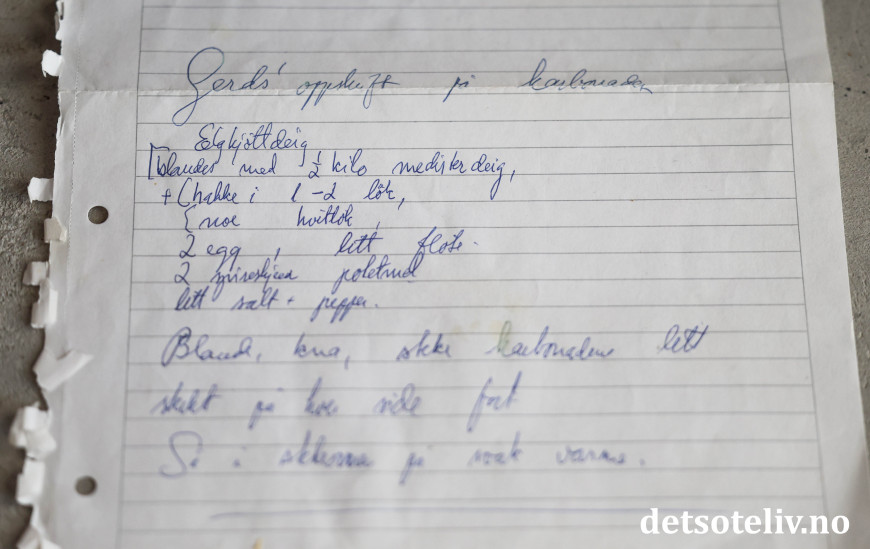 Gerds' oppskrift på karbonader
Elgkjøttdeig
blandes med 1/2 kilo medisterdeig,
+ hakke i 1-2 løk,
noe hvitløk,
2 egg, litt fløte.
2 spiseskjeer potetmel
litt salt + pepper.
Blande, kna, steke karbonadene lett
stekt på hver side fort
Så i stekeovn på svak varme.
detsoteliv.no